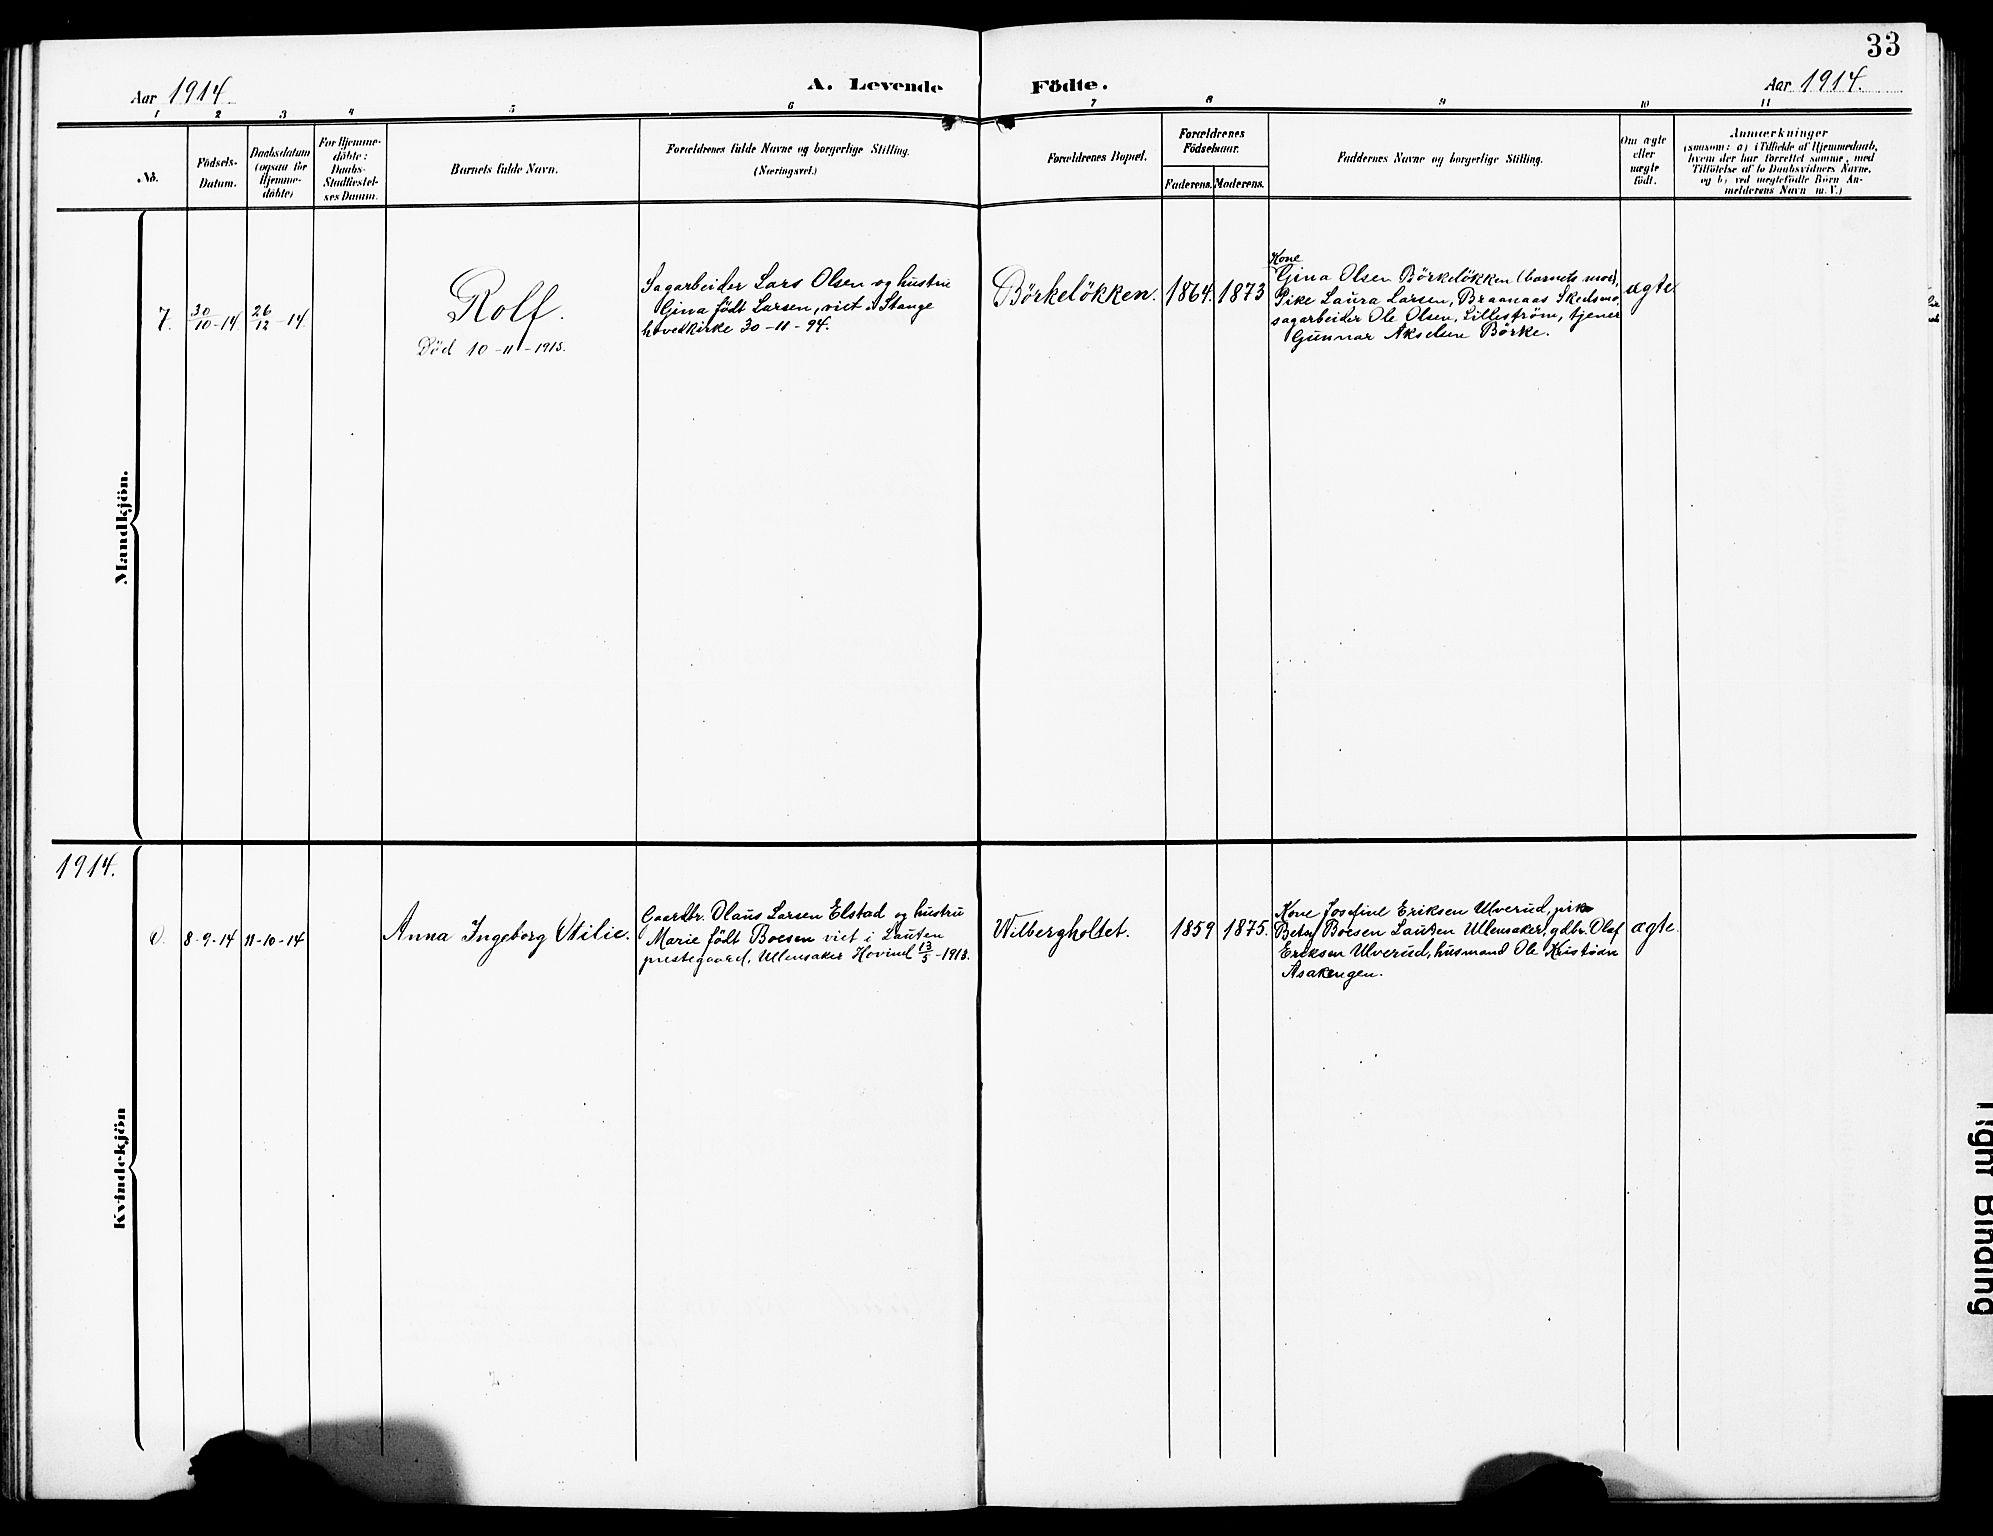 33
Aar 1914
A. Levende Födte.
Aar 1914.
1 2 3 4 5 6 7 8 9 10 11
No.
Födsels-
Datum.
Daabsdatum
(ogsaa for
Hjemme-
döbte)
For Hjemme-
döbte:
Daabs-
Stadfæstel-
ses Datum.
Barnets fulde Navn.
Forældrenes fulde Navne og borgerlige Stilling.
(Næringsvei.)
Forældrenes Bopæl.
Forældrenes
Födselsaar.
Faderens. Moderens.
Faddernes Navne og borgerlige Stilling.
Om ægte
eller
uægte
födt.
Anmærkninger
(saasom: a) i Tilfælde af Hjemmedaab,
hvem der har forrettet samme, med
Tilföielse af to Daabsvidners Navne,
og b) ved uægtefödte Börn An-
melderens Navn m. V.)
Mandkjön.
7.
30/10-14
26/12-14
Rolf.
Död 10-11-1915.
Sagarbeider Lars Olsen og hustru
Gina född Larsen, viet i Stange
hovedkirke 30-11-94.
Börkelökken.
1864.
1873
Kone
Gina Olsen Börkelökken (barnets mor),
Pike Laura Larsen, Braanaas Skedsmo,
sagarbeider Ole Olsen, Lilleström, tjener
Gunnar Akselsen Börke.
ægte
1914.
Kvindekjön
8-9-14
11-10-14
Anna Ingeborg Otilie.
Gaardbr. Olaus Larsen Elstad og hustru
Marie födt Boesen viet i Lauten
prestegaard, Ullensaker Hovind 13/5-1913.
Wilbergholtet.
1859
1875.
Kone Josefine Eriksen Ulverud, pike
Betsy Boesen Lauten Ullensaker, gdbr. Olaf
Eriksen Ulverud, husmand Ole Kristian
Asakengen.
ægte.
Tight Binding